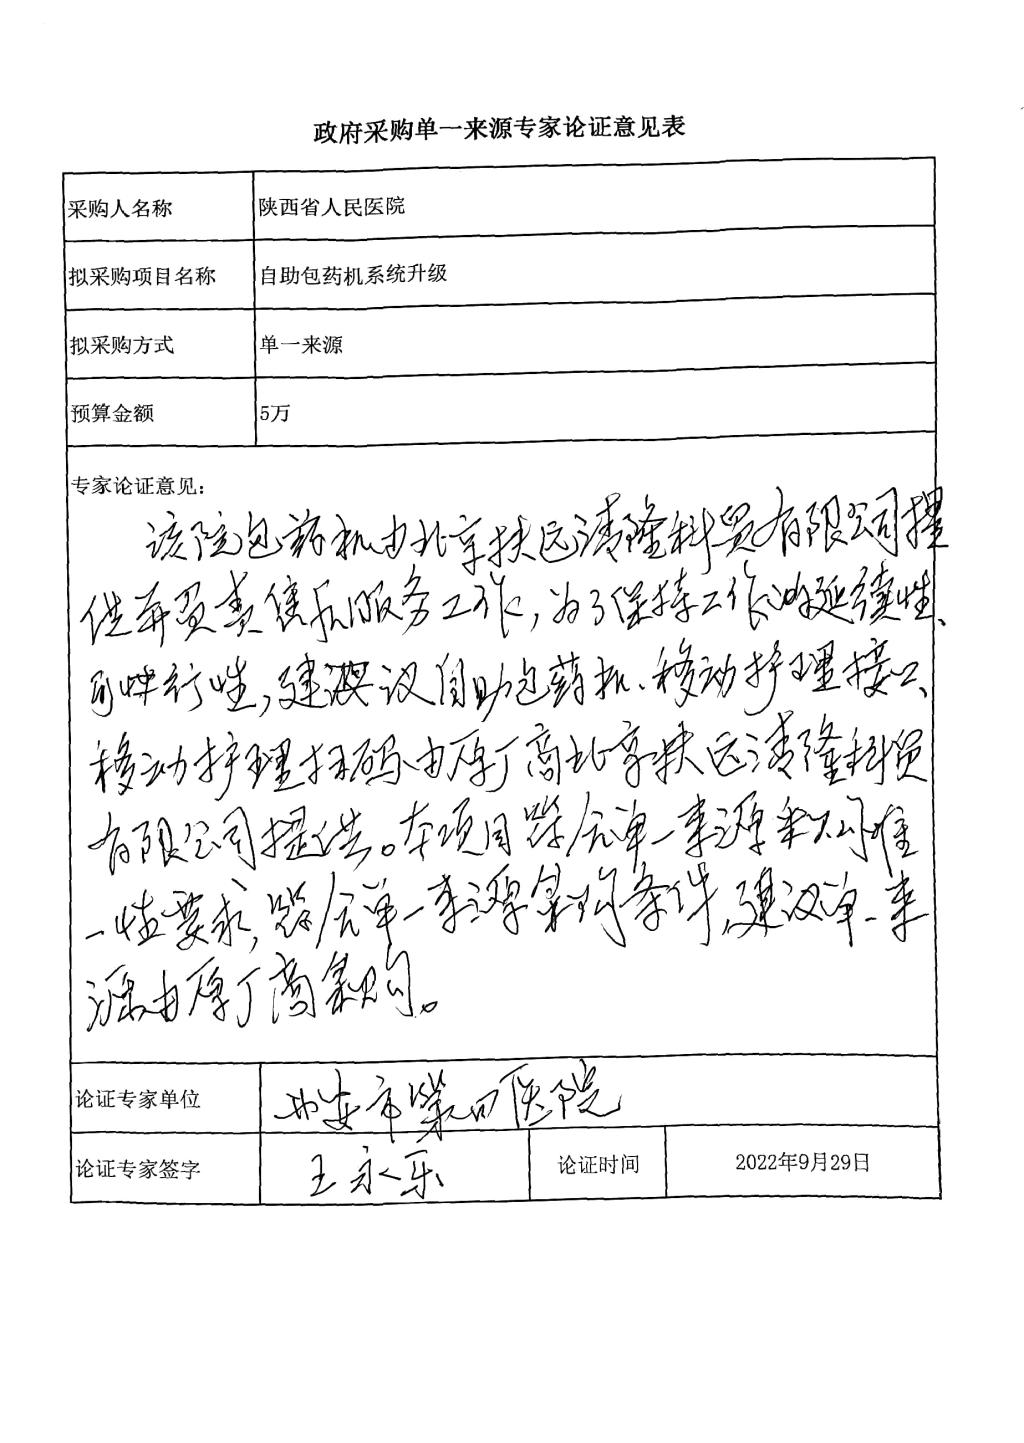 政府采购单一来源专家论证意见表
采购人名称 陕西省人民医院
拟采购项目名称 自助包药机系统升级
拟采购方式 单一来源
预算金额 5万
专家论证意见：
该院包药机由北京扶远清隆科贸有限公司提
供并负责售后服务工作，为了保持工作的延续性、
可行性，建议自助包药机、移动护理接口、
移动护理扫码由原厂商北京扶远清隆科贸
有限公司提供。本项目符合单一来源采公司唯
一性要求，符合单一来源采购条件，建议单一来
源由原厂商采购。
论证专家单位 西安市第四医院
论证专家签字 王永乐 论证时间 2022年9月29日